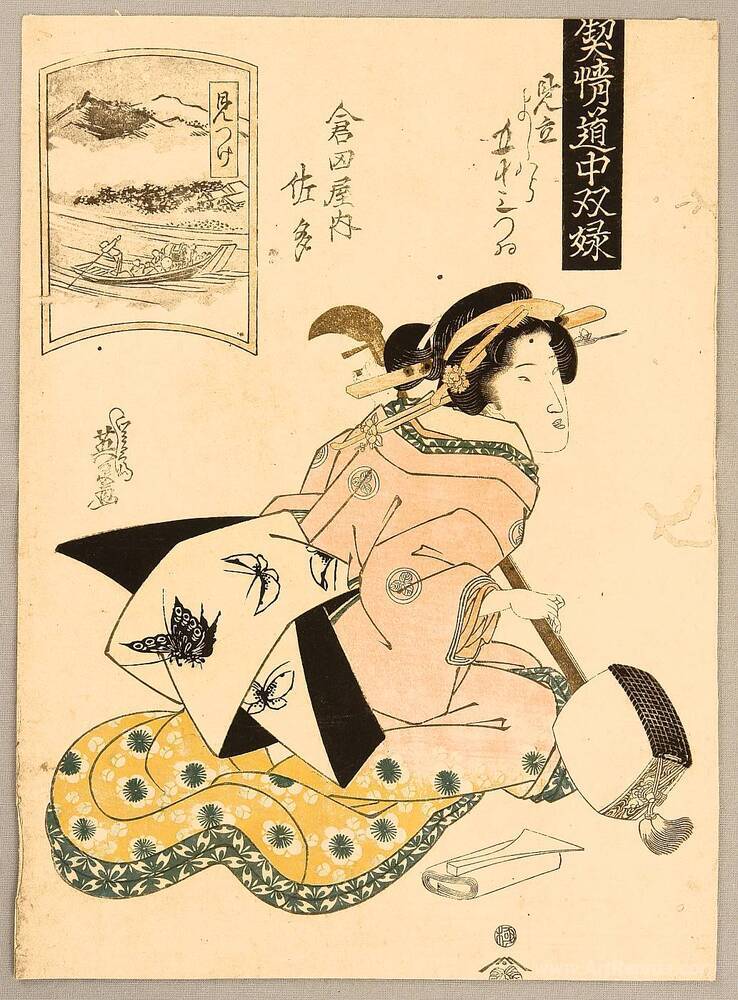 契情道中双娽
見立
よしはら
五十三つゐ
倉田屋内
佐多
見つけ
英泉画
極